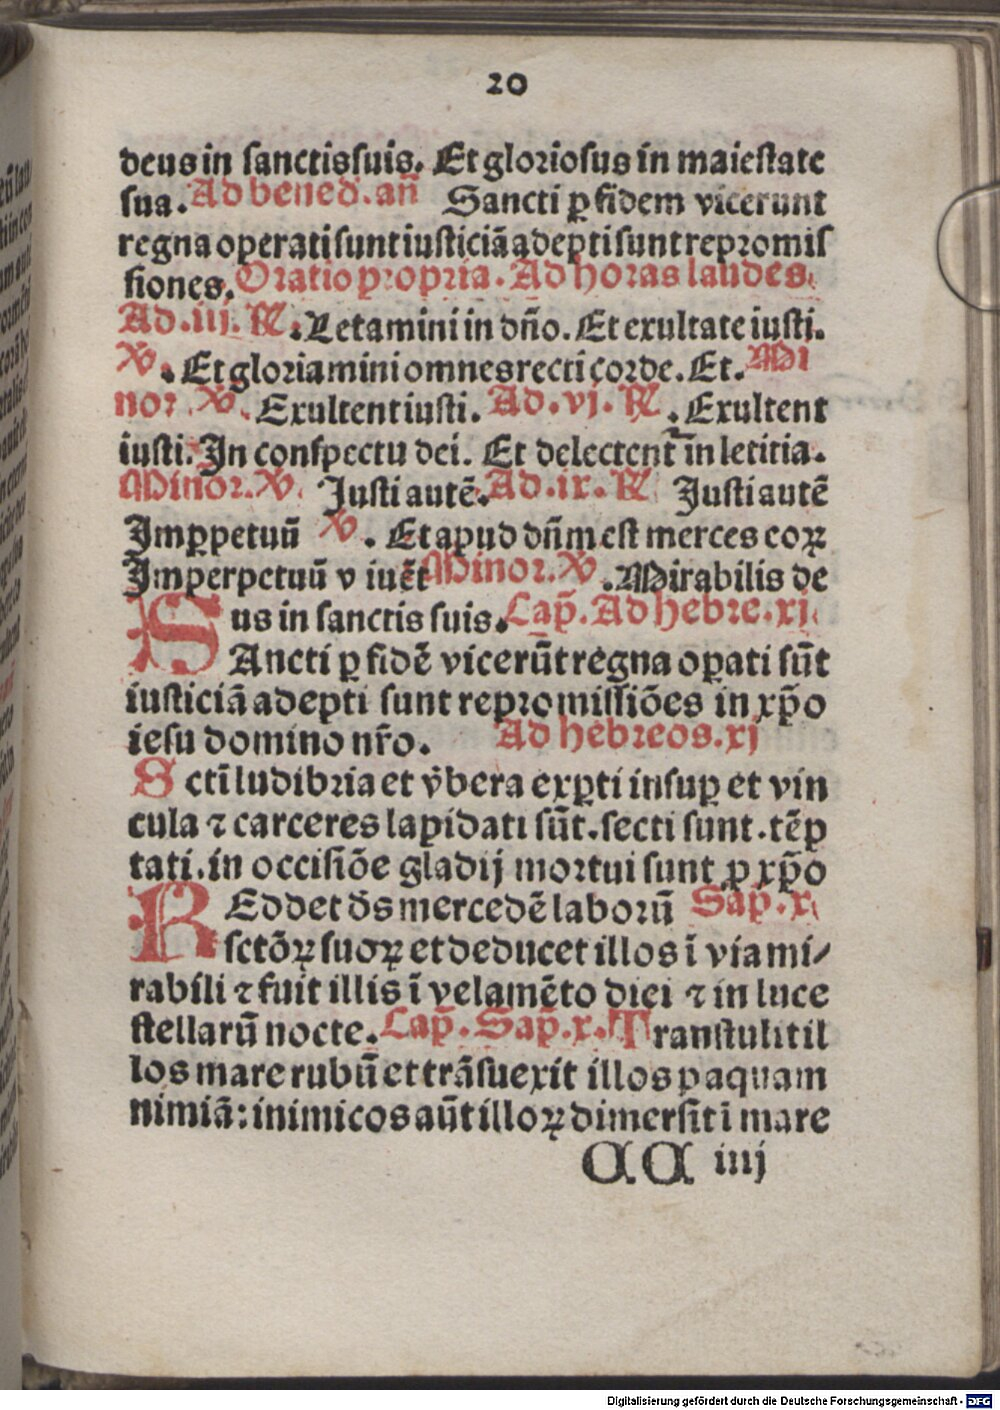 20
deus in sanctis suis. Et gloriosus in maiestate
sua. Ad bened. añ Sancti ꝑ fidem vicerunt
regna operati sunt iusticiã adepti sunt repromis
siones. Oratio propria. Ad horas laudes.
Ad .iij. ℟. Letamini in dño. Et exultate iusti.
℣. Et gloriamini omnes recti corde. Et. Mi
nor. ℣. Exultent iusti. Ad .vj. ℟. Exultent
iusti. In conspectu dei. Et delectent̃ in letitia.
Minor. ℣. Iusti autẽ. Ad .ix. ℟ Iusti autẽ
Imꝑpetuũ ℣. Et apud dñm est merces coꝝ
Imperpetuũ v iuẽt Minor. ℣. Mirabilis de
us in sanctis suis. Cap̃. Ad hebre. xj.
SAncti ꝑ fidẽ vicerũt regna oꝑati sũt
iusticiã adepti sunt repromissiões in xp̃o
iesu domino nr̃o. Ad hebreos. xj
Sctĩ ludibria et v̾bera exꝑti insuꝑ et vin
cula ⁊ carceres lapidati sũt. secti sunt. tẽꝑ
tati. in occisiõe gladij mortui sunt ꝓ xp̃o
REddet d̃s mercedẽ laborũ Sap̃. x.
sctõꝝ suoꝝ et deducet illos ĩ via mi/
rabili ⁊ fuit illis ĩ velamẽto diei ⁊ in luce
stellarũ nocte. Cap̃. Sap̃. x. Transtulit il
los mare rubũ et trãsuexit illos ꝑ aquam
nimiã: inimicos aũt illoꝝ dimersit ĩ mare
AA iiij
Digitalisierung gefördert durch die Deutsche Forschungsgemeinschaft - DFG